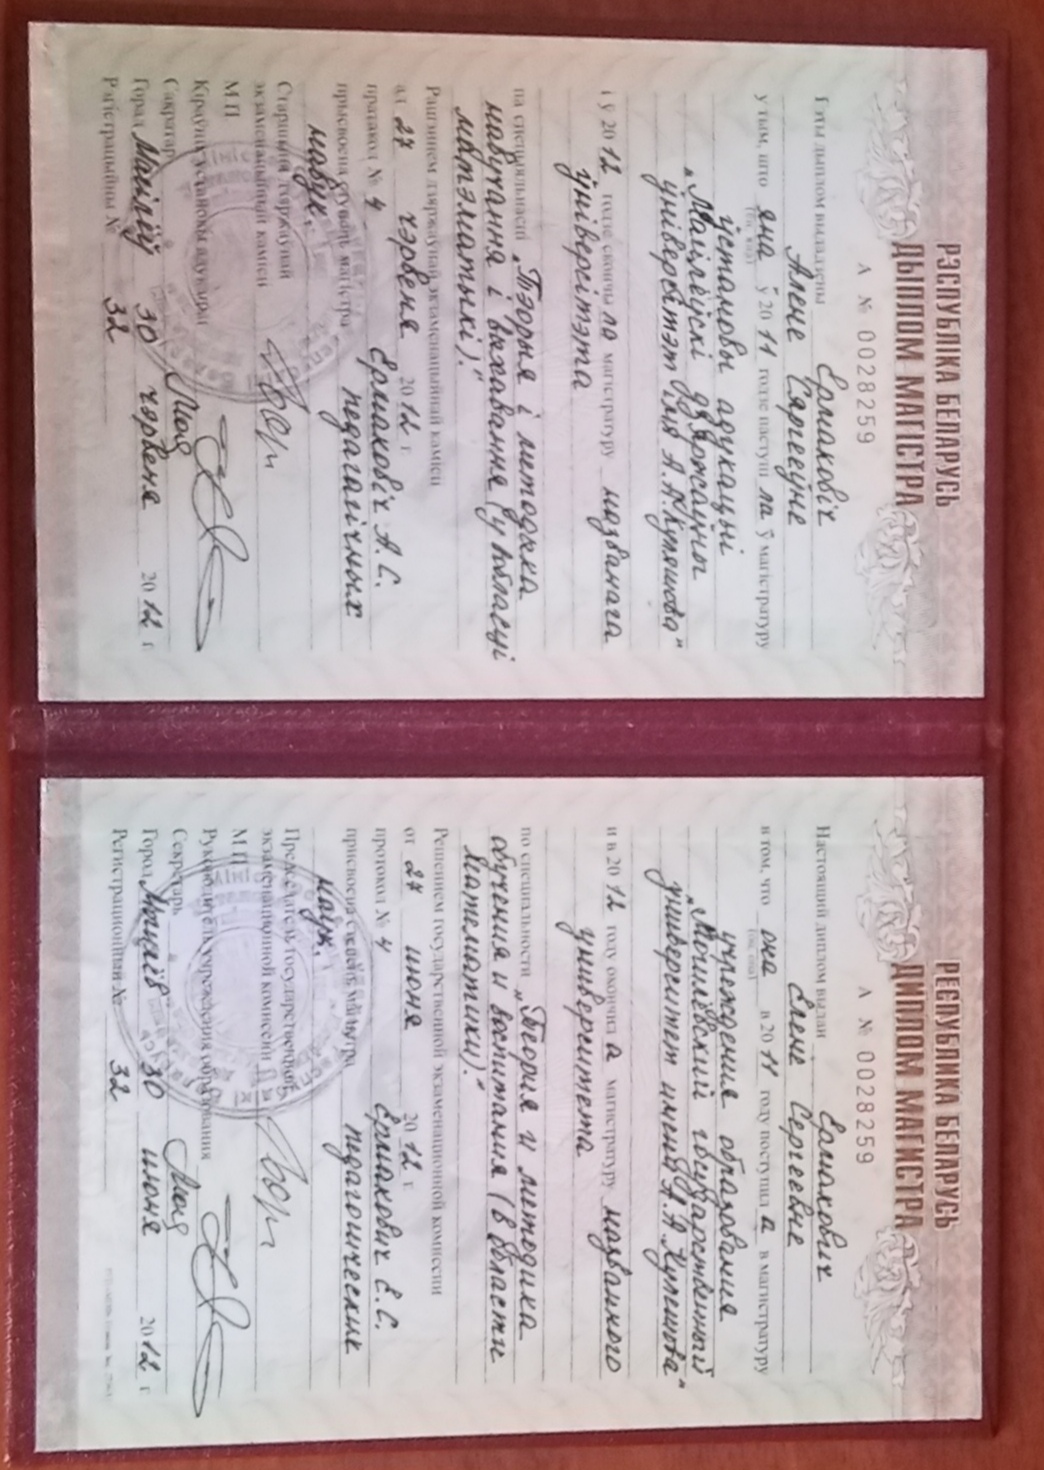 РЭСПУБЛІКА БЕЛАРУСЬ
ДЫПЛОМ МАГІСТРА
А № 0028259
Гэты дыплом выдадзены Ермаковіч
Алене Сяргееўне
у тым, што яна ў 2011 годзе паступіла ў магістратуру
установы адукацыі
„Магілёўскі дзяржаўны
ўніверсітэт імя А.А. Куляшова“
і ў 2012 годзе скончыла магістратуру названага
ўніверсітэта
па спецыяльнасці „Тэорыя і методыка
навучання і выхавання (у вобласці
матэматыкі).“
Рашэннем дзяржаўнай экзаменацыйнай камісіі
ад 27 чэрвеня 2012 г.
пратакол № 4 Ермаковіч А.С.
прысвоена ступень магістра педагагічных
навук.
Старшыня дзяржаўнай
экзаменацыйнай камісіі
М.П.
Кіраўнік установы адукацыі
Сакратар
Горад Магілёў 30 чэрвеня 2012 г.
Рэгістрацыйны № 32
РЕСПУБЛИКА БЕЛАРУСЬ
ДИПЛОМ МАГИСТРА
А № 0028259
Настоящий диплом выдан Ермакович
Елене Сергеевне
в том, что она в 2011 году поступила в магистратуру
(он, она)
учреждения образования
„Могилёвский государственный
университет имени А.А. Кулешова“
и в 2012 году окончила магистратуру названного
университета
по специальности „Теория и методика
обучения и воспитания (в области
математики).“
Решением государственной экзаменационной комиссии
от 27 июня 2012 г.
протокол № 4 Ермакович Е.С.
присвоена степень магистра педагогических
наук.
Председатель государственной
экзаменационной комиссии
М.П.
Руководитель учреждения образования
Секретарь
Город Могилёв 30 июня 2012 г.
Регистрационный № 32